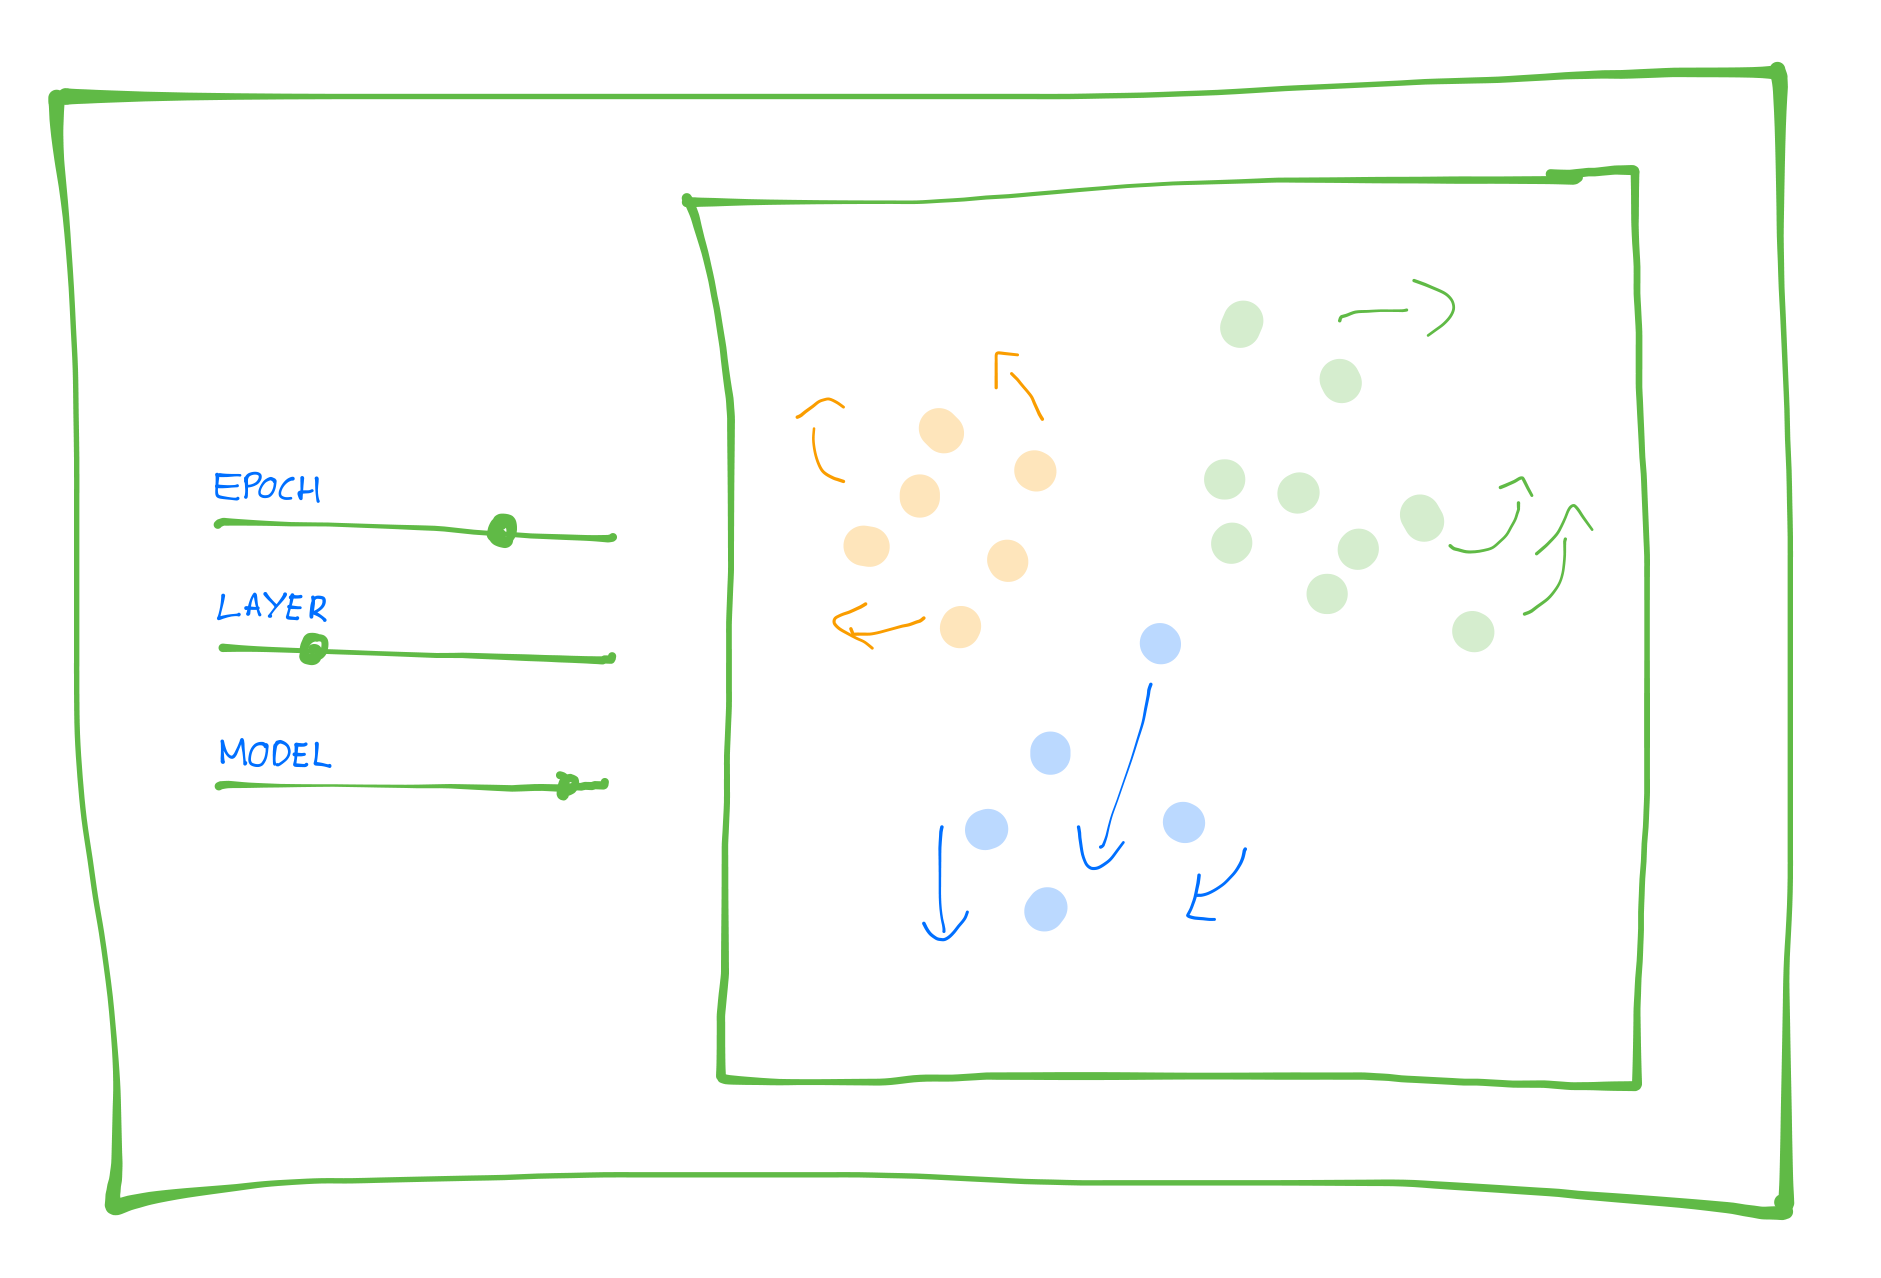 EPOCH
LAYER
MODEL